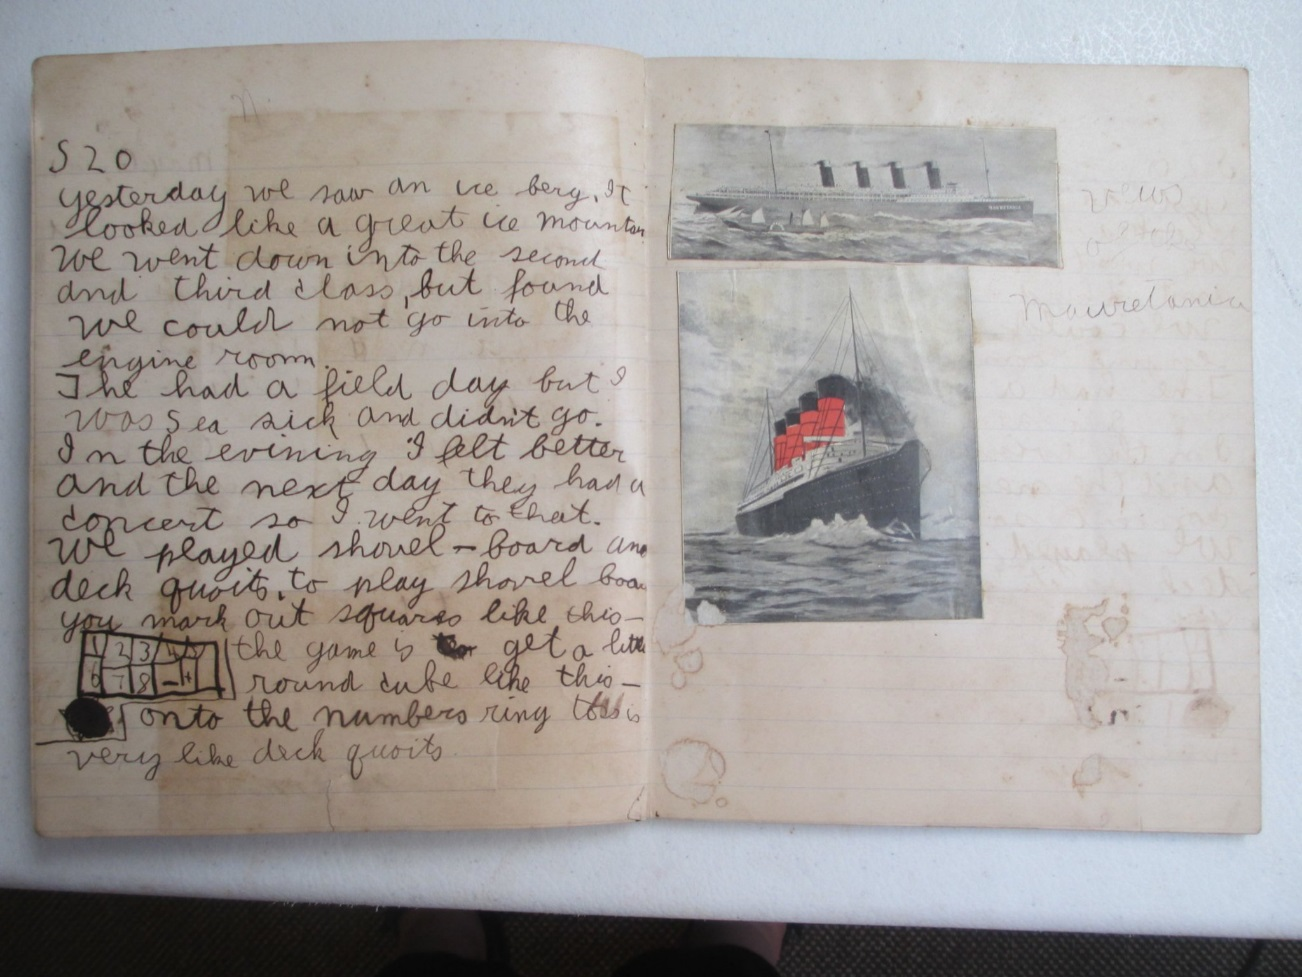 S 20
yesterday we saw an ice berg. It
looked like a great ice mountain
we went down into the second
and third class, but found
we could not go into the
engine room.
The had a field day but I
was sea sick and didn't go.
In the evining I felt better
and the next day they had a
concert so I went to that.
We played shovel-board and
deck quoits. to play shovel boa
you mark out squares like this-
1 2 3 4
6 7 8
the game is get a little
round cube like this-
onto the numbers ring is
very like deck quoits
views
of
Mauretania